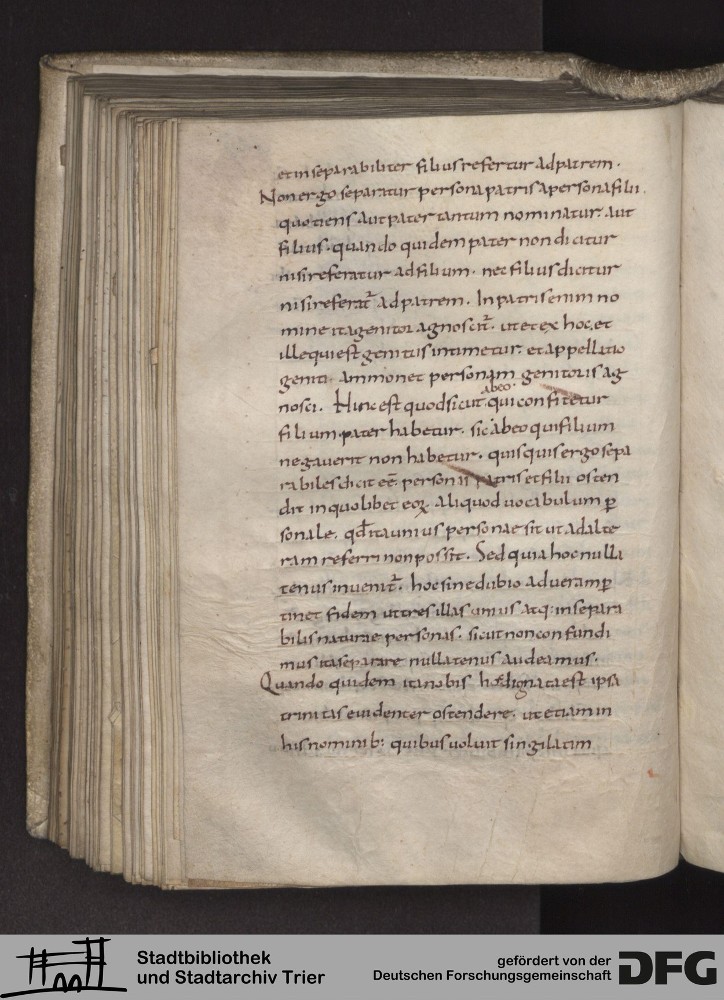 et inseparabiliter filius refertur ad patrem.
Non ergo separatur persona patris a persona filii.
quotiens aut pater tantum nominatur. aut
filius. quando quidem pater non dicitur
nisi referatur ad filium. nec filius dicitur
nisi referat̃ ad patrem. In patris enim no
mine ita genitor agnoscit̃. ut et ex hoc. et
ille qui est genitus intimetur. et appellatio
geniti ammonet personam genitoris ag
abeo.
nosci. Hinc est quod sicut qui confitetur
filium. pater habetur. sic abeo qui filium
negauerit non habetur. quisquis ergo sepa
rabiles dicit eē personas patris et filii osten
dit in quolibet eoꝝ aliquod uocabulum ꝑ
sonale. qđ ita unius personae sit ut ad alte
ram referri non possit. Sed quia hoc nulla
tenus inuenit̃. hoc sine dubio ad ueram ꝑ
tinet fidem ut tres illas unius atq: insepara
bilis naturae personas. sicut non confundi
mus ita separare nullatenus audeamus.
Quando quidem ita nobis hoc dignata est ipsa
trinitas euidenter ostendere. ut etiam in
his nominib: quibus uoluit singilatim
Stadtbibliothek
und Stadtarchiv Trier
gefördert von der
Deutschen Forschungsgemeinschaft
DFG